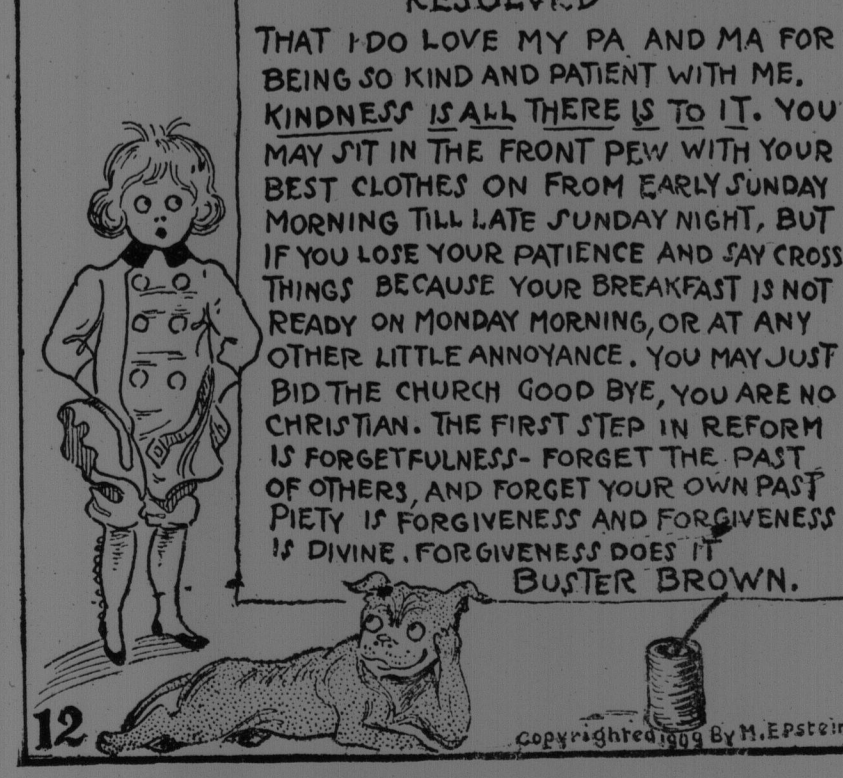 RESOLVED
THAT I DO LOVE MY PA AND MA FOR
BEING SO KIND AND PATIENT WITH ME.
KINDNESS IS ALL THERE IS TO IT. YOU
MAY SIT IN THE FRONT PEW WITH YOUR
BEST CLOTHES ON FROM EARLY SUNDAY
MORNING TILL LATE SUNDAY NIGHT, BUT
IF YOU LOSE YOUR PATIENCE AND SAY CROSS
THINGS BECAUSE YOUR BREAKFAST IS NOT
READY ON MONDAY MORNING, OR AT ANY
OTHER LITTLE ANNOYANCE. YOU MAY JUST
BID THE CHURCH GOOD BYE, YOU ARE NO
CHRISTIAN. THE FIRST STEP IN REFORM
IS FORGETFULNESS- FORGET THE PAST
OF OTHERS, AND FORGET YOUR OWN PAST
PIETY IS FORGIVENESS AND FORGIVENESS
IS DIVINE. FORGIVENESS DOES IT
BUSTER BROWN.
12
Copyrighted 1909 By M. EPstein